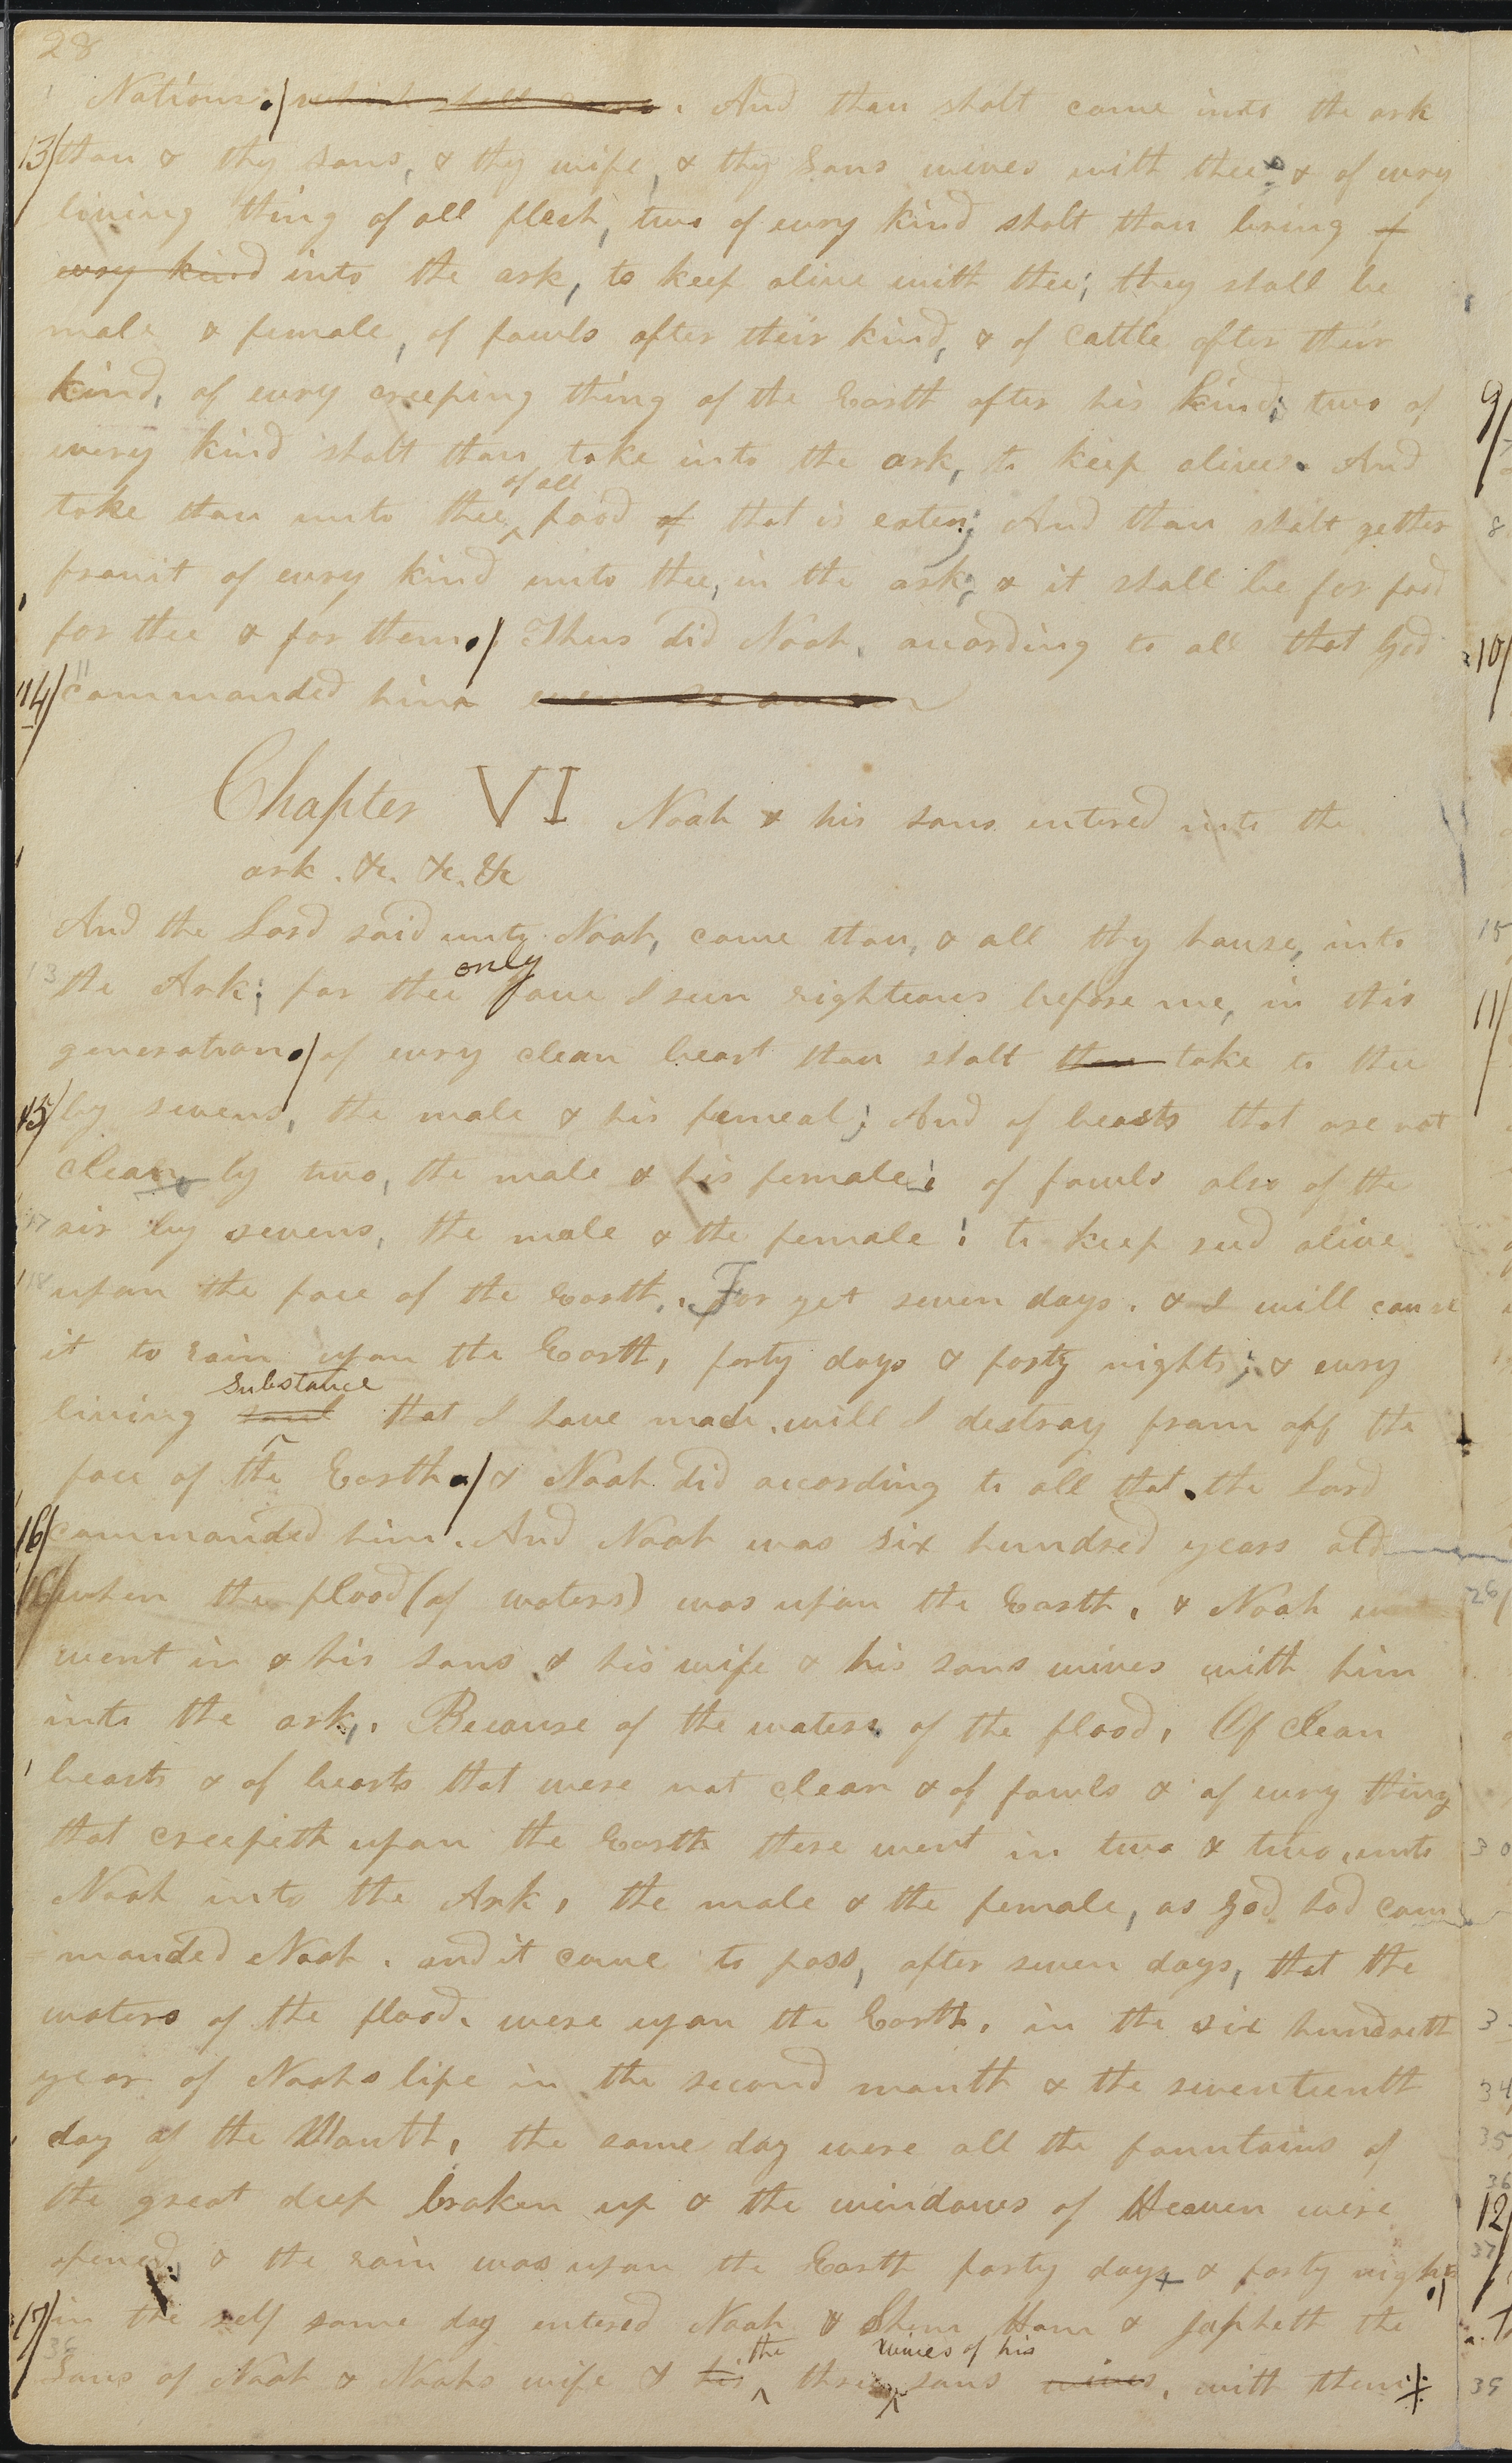 28
Nations. And thou shalt come into the ark
13 thou & thy sons, & thy wife, & thy Sons wives with thee & of evry
living thing of all flesh, two of evry kind shalt thou bring of
evry kind into the ark, to keep alive with thee; they shall be
male & female, of fowls after their kind, & of Cattle after their
kind, of evry creeping thing of the Earth after his kind; two of
every kind shalt thou take into the ark, to keep alive. And
of all
take thou unto thee food of that is eaten; And thou shalt gether
frouit of evry kind unto thee, in the ark; & it shall be for food
for thee & for them./ Thus did Noah, acording to all that God
14/ commanded him
Chapter VI Noah & his sons entered into the
ark. &c. &c. &c
And the Lord said unto Noah, come thou, & all thy house, into
only
13 the Ark; for thee have I seen righteous before me, in this
generation./ of evry clean beast thou shalt thou take to thee
15/ by sevens, the male & his femeal; And of beasts that are not
clean by two, the male & his female; of fowls also of the
17 air by sevens, the male & the female; to keep seed alive
18 upon the face of the Earth. For yet seven days. & I will cause
it to rain upon the Earth, forty days & forty nights; & evry
substance
living soul that I have made. will I destroy from off the
face of the Earth./ & Noah did according to all that the Lord
16/ commanded him. And Noah was six hundred years old
16/ when the flood (of waters) was upon the Earth. & Noah
went in & his sons & his wife & his sons wives with him
into the ark. Because of the waters of the flood. Of Clean
beasts & of beasts that were not clean & of fowls & of evry thing
that creepeth upon the Earth there went in two & two, unto
Noah into the Ark, the male & the female, as God had com
manded Noah. and it came to pass, after seven days, that the
waters of the flood. were upon the Earth. in the six hundreth
year of Noahs life in the second month & the seventeenth
day of the Month, the same day were all the fountains of
the great deep broken up & the windows of Heaven were
opened, & the rain was upon the Earth forty days & forty nights
17/ in the self same day entered Noah & Shem Ham & Japheth the
the wives of his
36 Sons of Noah & Noahs wife & his three sons wives, with them
9/
8
10/
15
11/
26
30
3
34
35
36
12/
37
39